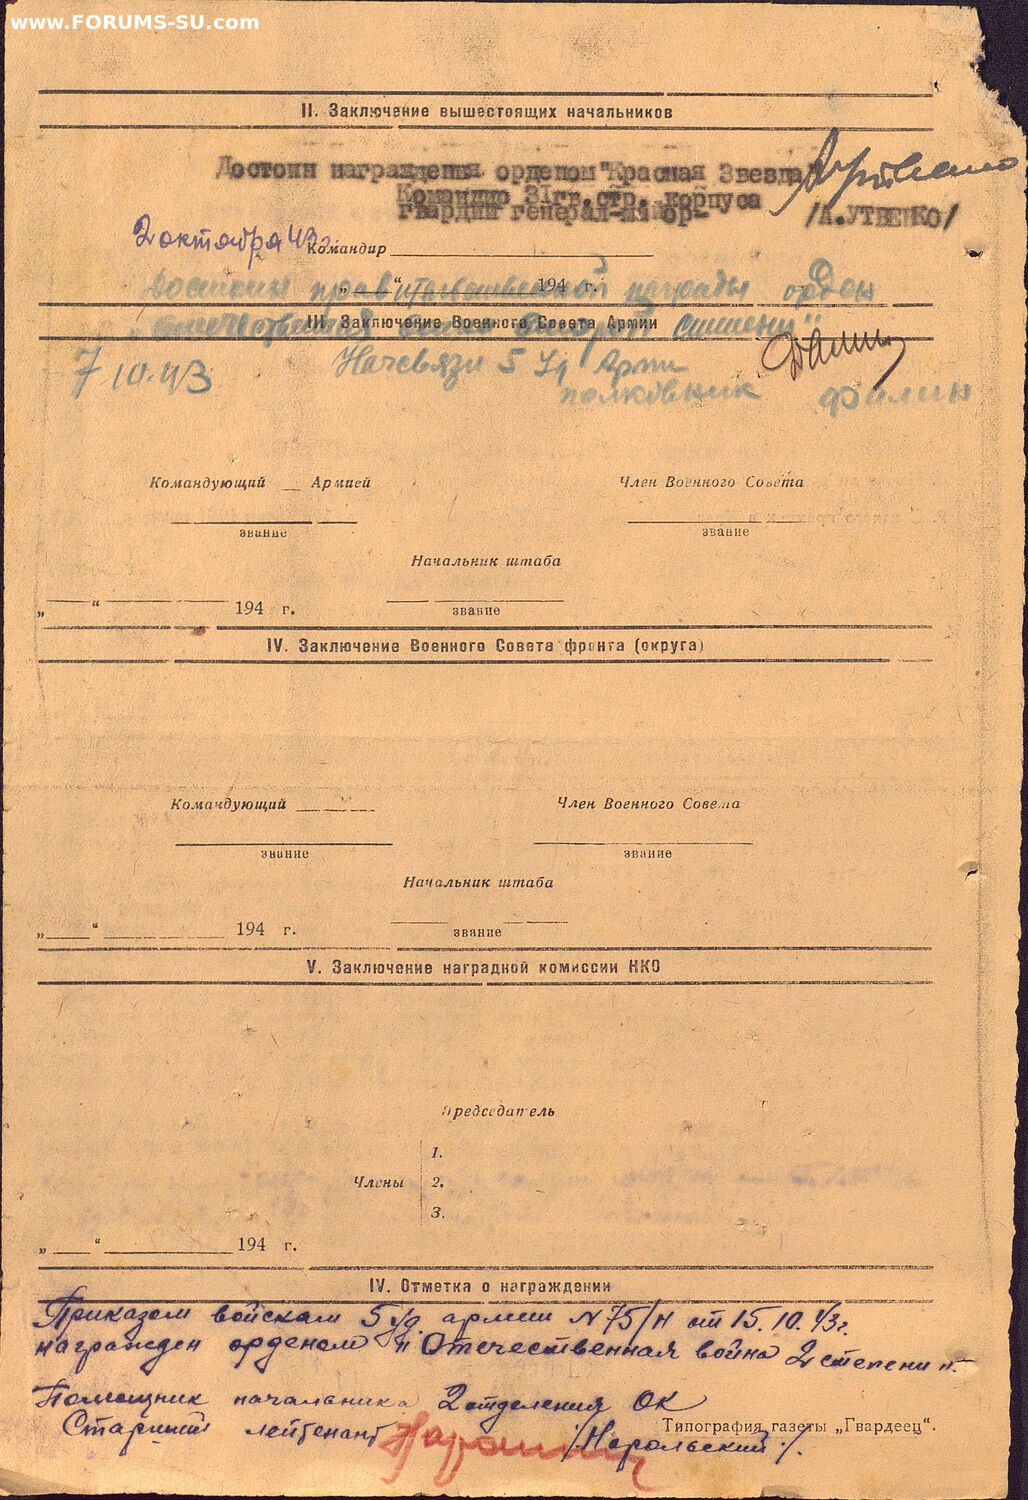 www.FORUMS-SU.com
II. Заключение вышестоящих начальников
Достоин награждения орденом "Красная Звезда"
Командир 31 гв. стр. корпуса
гвардии генерал-майор-
/А.УТВЕНКО/
2 октября 43г.
Командир
„ “ 194 г.
Достоин правительственной награды орден
III. Заключение Военного Совета Армии
„Отечественной войны второй степени"
7.10.43 Начсвязи 5 Уд Арми
полковник Фалин
Командующий Армией Член Военного Совета
звание звание
Начальник штаба
„ “ 194 г. звание
IV. Заключение Военного Совета фронта (округа)
Командующий Член Военного Совета
звание звание
Начальник штаба
„ “ 194 г. звание
V. Заключение наградной комиссии НКО
Председатель
1.
Члены 2.
3.
„ “ 194 г.
IV. Отметка о награждении
Приказом войскам 5 уд. армии N 75/н от 15.10.43г.
награжден орденом "Отечественная война 2 степени".
Помощник начальника 2 отделения ОК
Старший лейтенант /Карольский/.
Типография газеты „Гвардеец“.